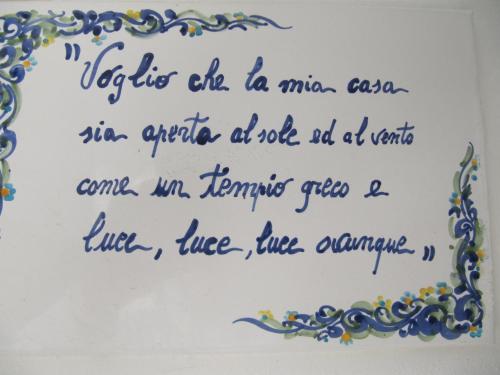 "Voglio che la mia casa
sia aperta al sole ed al vento
come un tempio greco e
luce, luce, luce ovunque"